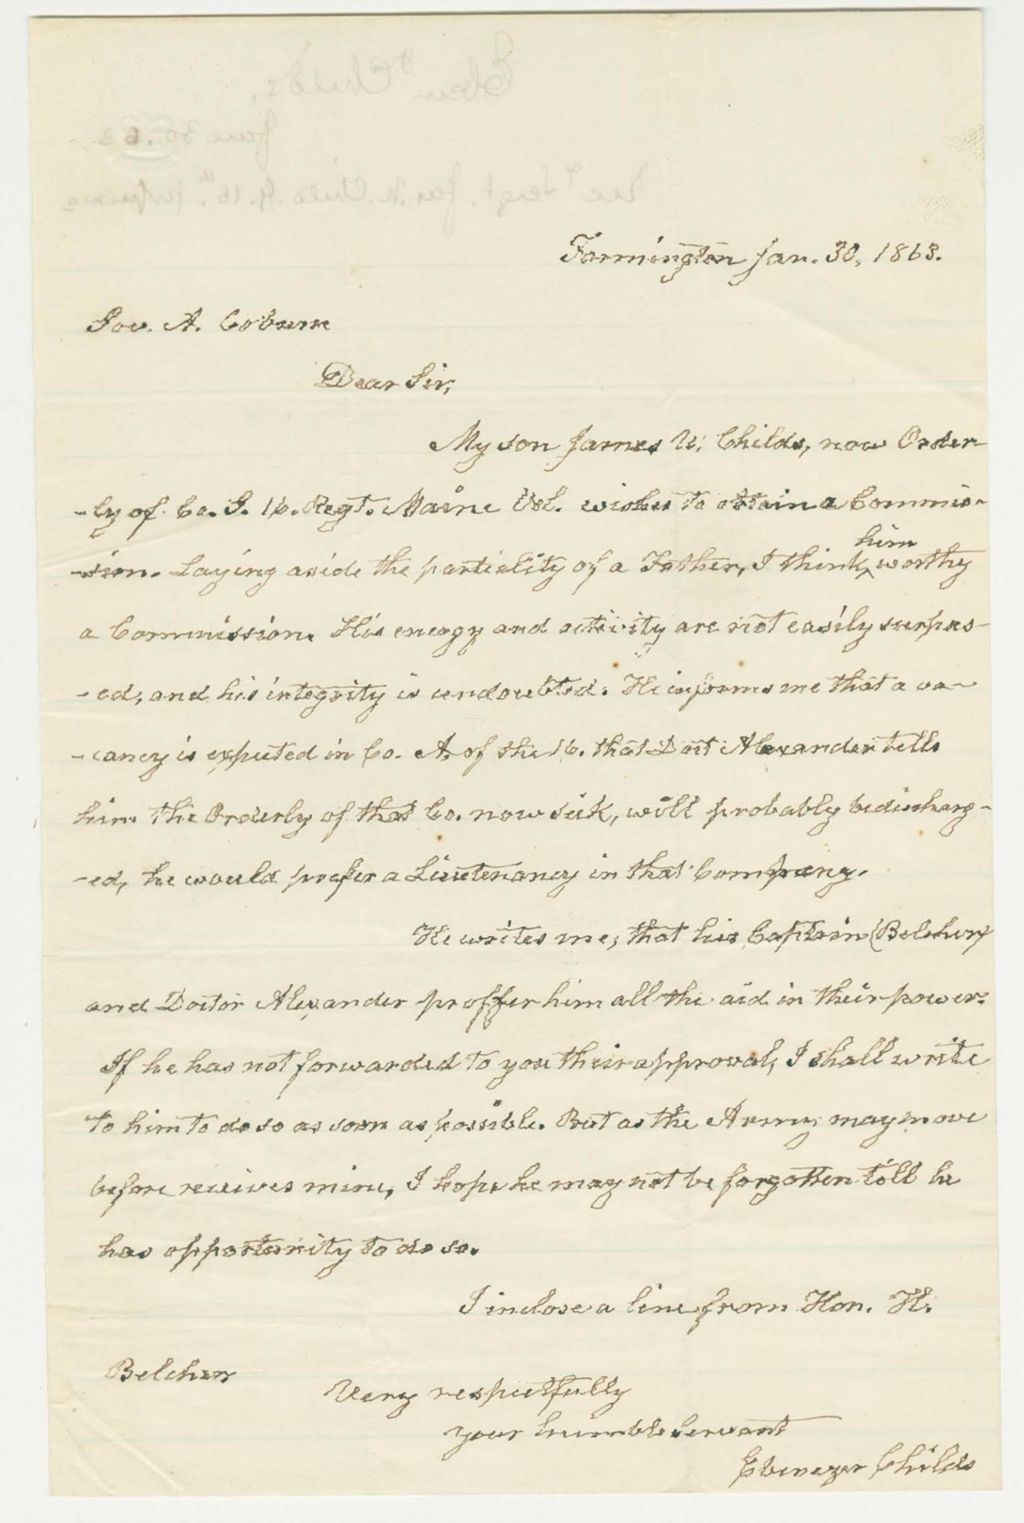 Farmington Jan. 30, 1863.
Gov. A. Coburn
Dear Sir,
My son James W. Childs, now Order-
-ly of Co. G. 16. Regt. Maine Vol. wishes to obtain a Commis-
-sion. Laying aside the partiality of a Father, I think him worthy
a Commission. His energy and activity are not easily surpas-
-ed, and his integrity is undoubted. He informs me that a va-
-cancy is expected in Co. A. of the 16. that Doct Alexander tells
him the Orderly of that Co. now sick, will probably be discharg-
-ed, he would prefer a Lieutenancy in that Company.
He writes me, that his Captain (Belcher)
and Doctor Alexander proffer him all the aid in their power.
If he has not forwarded to you their approval, I shall write
to him to do so as soon as possible. But as the Army may move
before receives mine, I hope he may not be forgotten till he
has opportunity to do so.
I inclose a line from Hon. H.
Belcher
Very respectfully
your humble servant
Ebenezer Childs